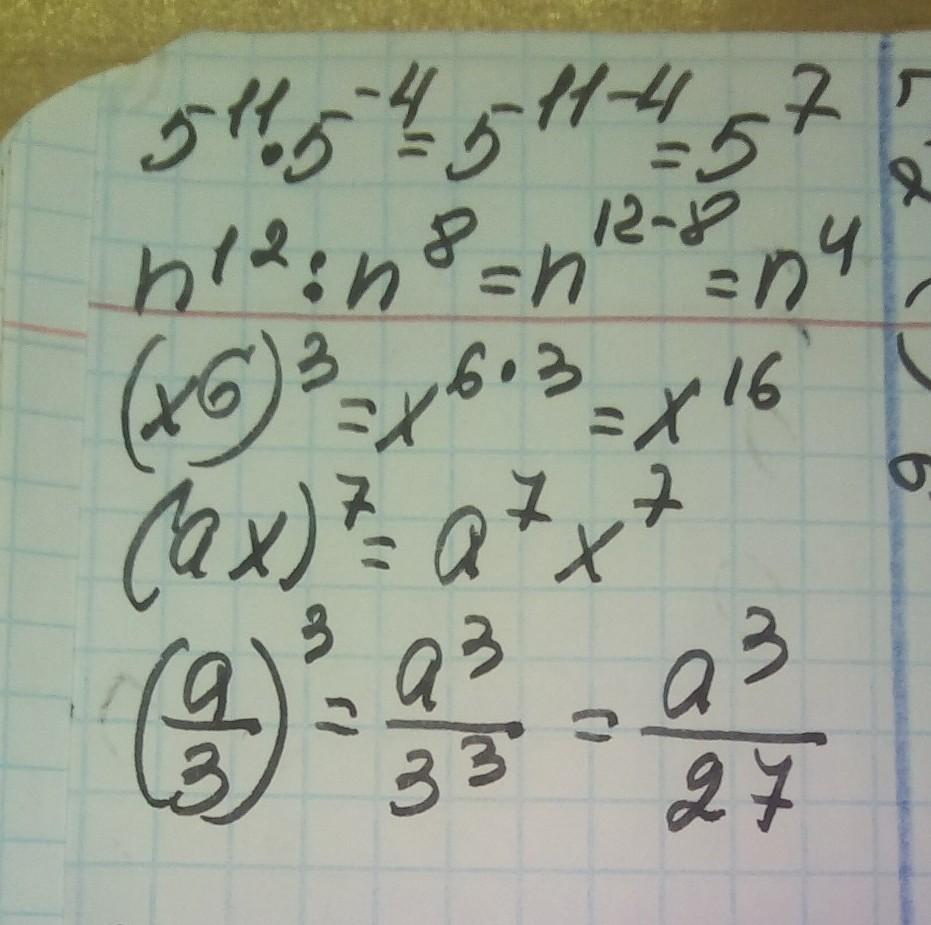 5¹¹·5⁻⁴=5¹¹⁻⁴=5⁷
n¹²:n⁸=n¹²⁻⁸=n⁴
(x6)³=x⁶·³=x¹⁶
(ax)⁷=a⁷x⁷
(a/3)³=a³/3³=a³/27